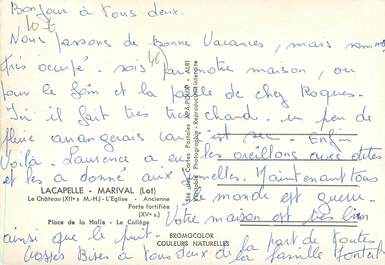 Bonjour à tous deux.
Nous passons de Bonne Vacances, mais sommes
très occupé sois par notre maison, ou
par le foin et la paille de chez Roques.
Ici il fait très très chaud. un peu de
pluie arrangerais car c'est sec. Enfin
Voilà. Laurence a eu les oreillons aux dites
et les a donné aux jumelles. Maintenant tous
le monde est guéri.
Votre maison est très bien
ainsi que le fruit.
Grosses Bises à tous deux de la part de toutes
la famille
LACAPELLE - MARIVAL (Lot)
Le Château (XIIᵉ s M.-H.) - L'Eglise - Ancienne
Porte fortifiée
(XVᵉ s.)
Place de la Halle - Le Collège
BROMOCOLOR
COULEURS NATURELLES
Sté des Cartes Postales APA-POUX - ALBI
Véritable Photographie - Reproduction interdite
46